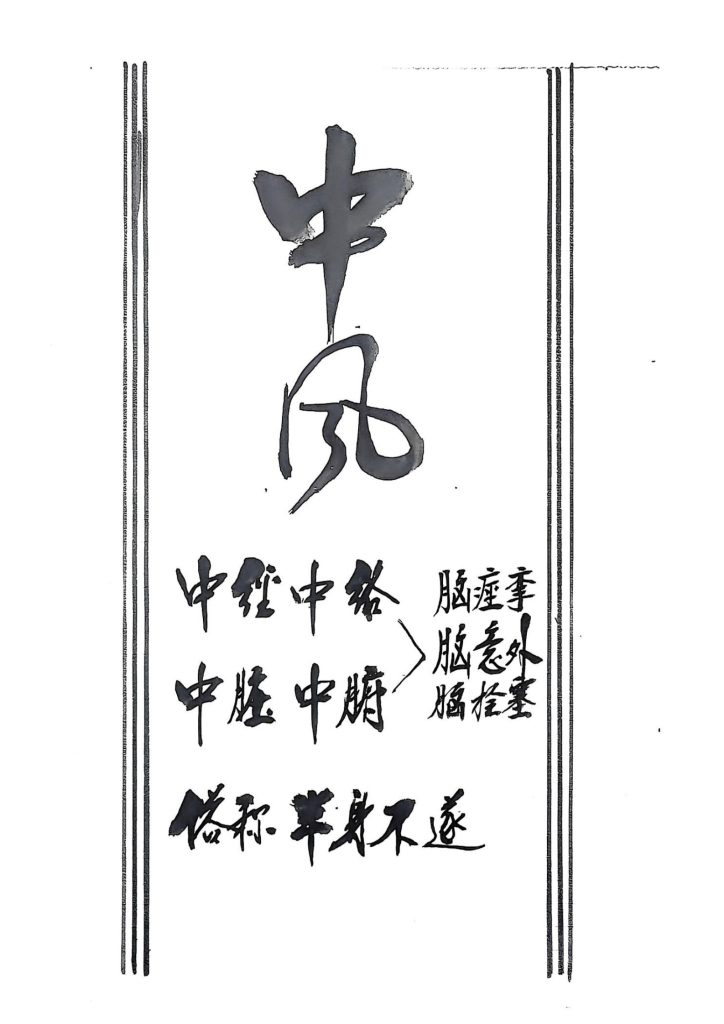 中风
中经中络
中脏中腑
脑痉挛
脑意外
脑栓塞
俗称半身不遂